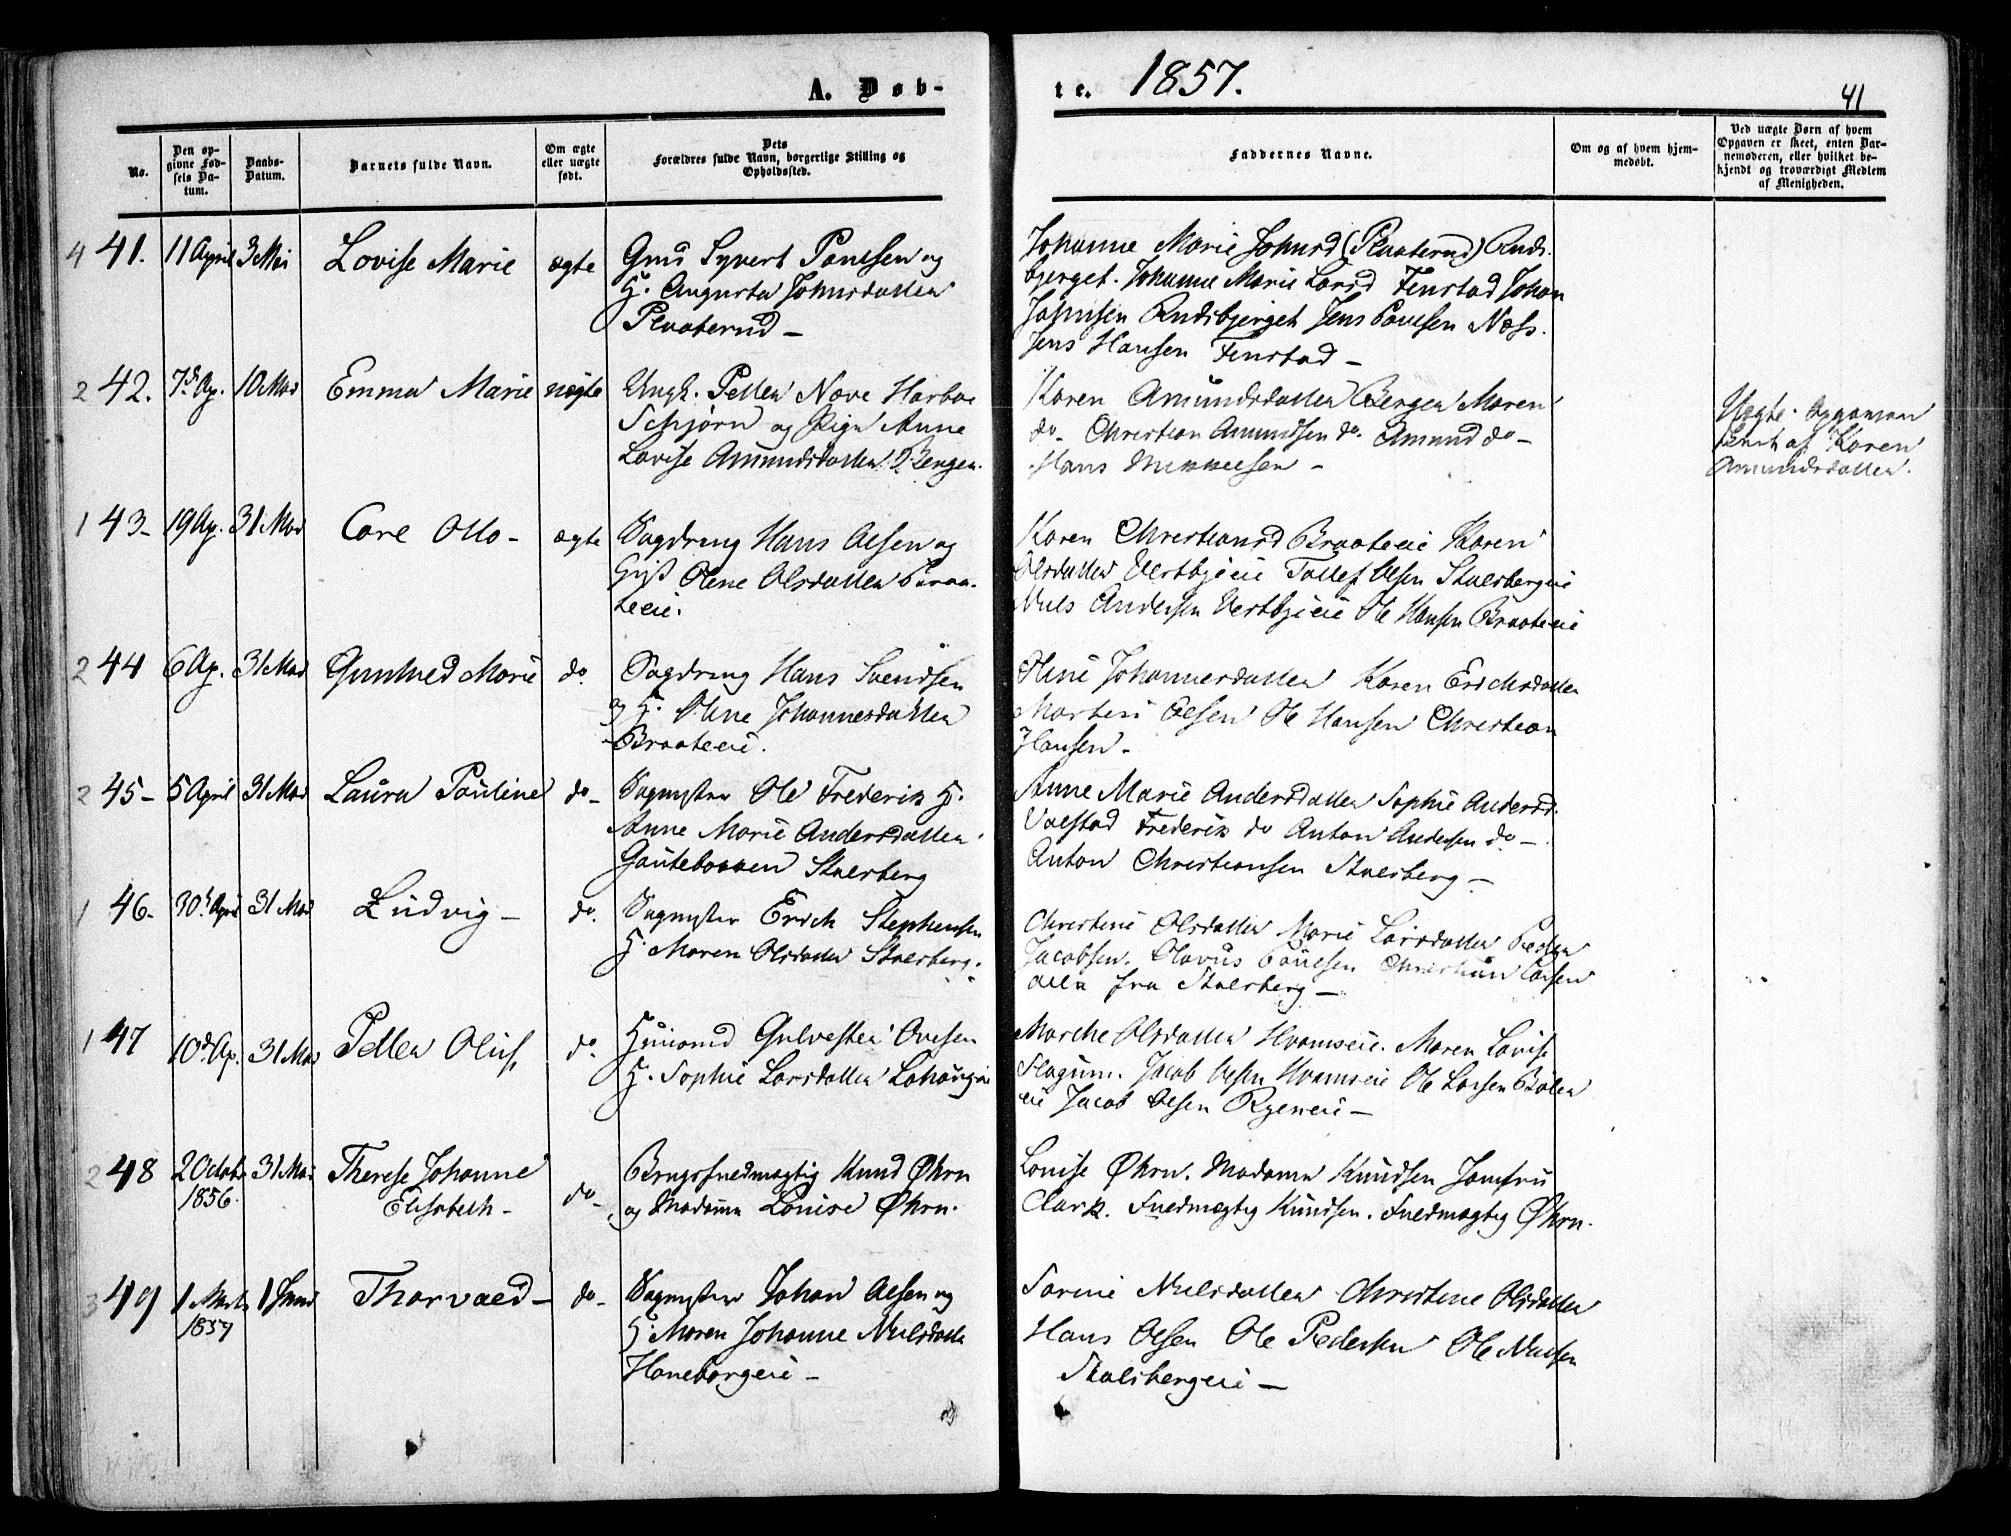 A. Døb-
te. 1857.
41
No.
Den op-
givne Fød-
sels Da-
tum.
Daabs-
Datum.
Barnets fulde Navn.
Om ægte
eller uægte
født.
Dets
Forældres fulde Navn, borgerlige Stilling og
Opholdssted.
Faddernes Navne.
Om og af hvem hjem-
medøbt.
Ved uægte Børn af hvem
Opgaven er skeet, enten Bar-
nemoderen, eller hvilket be-
kjendt og troværdigt Medlem
af Menigheden.
4 41. 11 April 3 Mai Lovise Marie ægte
Gmd Syvert Paulsen og
H. Augusta Johnsdatter
Plaaterud -
Johanne Marie Johnsd (Plaaterud)Ruds-
bjerget. Johanne Marie Larsd Finstad Johan
Johnsen Rudsbjerget Jens Paulsen Næss.
Jens Hansen Finstad -
2 42. 7de Ap. 10 Mai Emma Marie uægte
Ungk. Petter Nove Harboe
Schjørn og Pige Anne
Lovise Amundsdatter Bergen.
Karen Amundsdatter Bergen Maren
do. Christian Amundsen do. Amund do -
Hans Mikkelsen -
Uægte.
af Karen
Amundsdatter.
1 43 - 19 Ap. 31 Mai Carl Otto - ægte
Sagdreng Hans Olsen og
Olene Olsdatter Braa-
teeie.
Karen Christiansd Braateeie Karen
Olsdatter Vestbyeie Tollef Olsen Stalsbergeie
Niels Andersen Vestbyeie Ole Hansen Braateeie
2 44 6 Ap. 31 Mai Gunhild Marie do.
Sagdreng Hans Svendsen
og H. Oline Johannesdatter
Braateeie.
Oline Johannesdatter Karen Erichsdatter
Morten Olsen Ole Hansen Christian
Hansen -
2 45 - 5 April 31 Mai Laura Pauline do -
Sagmester Ole Frederik H.
Anne Marie Andersdatter
Gautebakken Stalsberg
Anne Marie Andersdatter Sophie Andersd.
Valstad Frederik do Anton Andersen do -
Anton Christiansen Stalsberg -
1 46 - 30 April 31 Mai Ludvig - do.
Sagmester Erich Stephensen
H. Maren Olsdatter Stalsberg.
Christine Olsdatter Marie Larsdatter Peder
Jacobsen. Olavus Paulsen Christian Larsen
alle fra Stalsberg -
1 47 10de Ap. 31 Mai Petter Oluf, do.
Huusmd Gulvester Ovesen
H. Sophie Larsdatter
Marthe Olsdatter Hvamseie. Maren Lovise
Flagum. Jacob Olsen Hvamseie Ole Larsen Bøler
eie Jacob Olsen Ryeneie -
2 48 2 Octobr 31 Mai Therese Johanne
1856. Elisabeth - do -
Brugsfuldmægtig Knud Øhrn
og Madame Louise Øhrn.
Louise Øhrn. Madame Knudsen Jomfru
Clark. Fuldmægtig Knudsen. Fuldmægtig Øhrn.
3 49 1 Marts 1 Juni Thorvald - do -
1857
Sagmester Johan Olsen og
H. Maren Johanne Nielsdatt
Haneborgeie -
Sorine Nielsdatter Christine Olsdatter
Hans Olsen Ole Pedersen Ole Nielsen
Stalsbergeie -